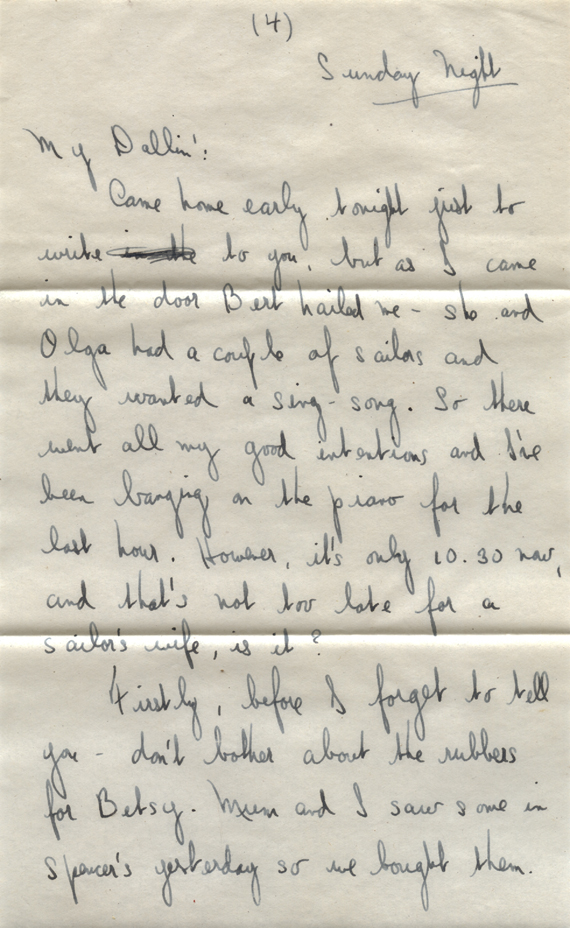 (4)
Sunday Night
My Dallin':
Came home early tonight just to
write in the to you, but as I came
in the door Bert hailed me - she and
Olga had a couple of sailors and
they wanted a sing-song. So there
went all my good intentions and I've
been banging on the piano for the
last hour. However, it's only 10.30 now,
and that's not too late for a
sailor's wife, is it?
Firstly, before I forget to tell
you - don't bother about the rubbers
for Betsy. Mum and I saw some in
Spencer's yesterday so we bought them.